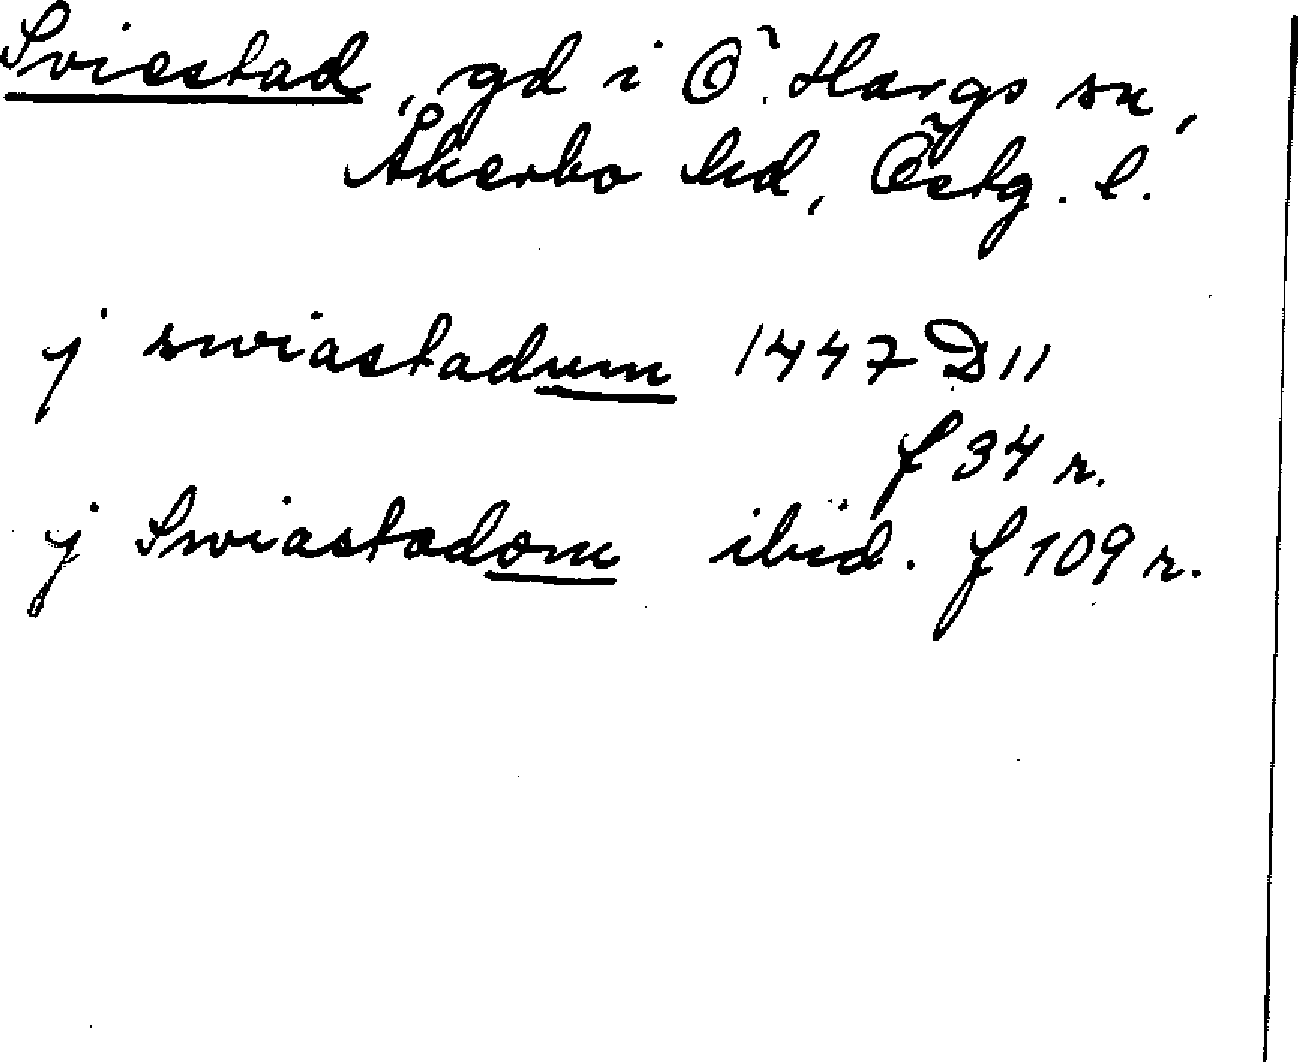 Sviestad, gd i Ö. Hargs sn,
Åkerbo hd, Östg. l.
j swiastadum 1447 D 11
f 34 r.
j Swiastadom ibid. f 109 r.